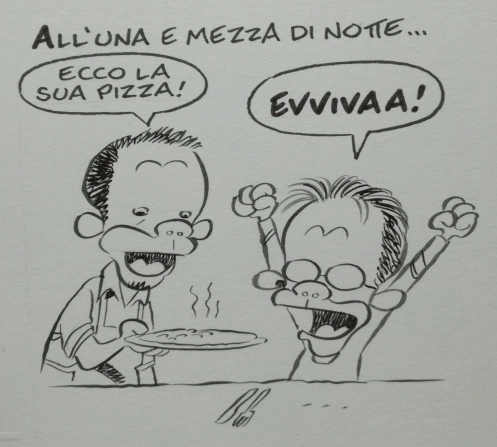 ALL'UNA E MEZZA DI NOTTE...
ECCO LA
SUA PIZZA!
EVVIVAA!